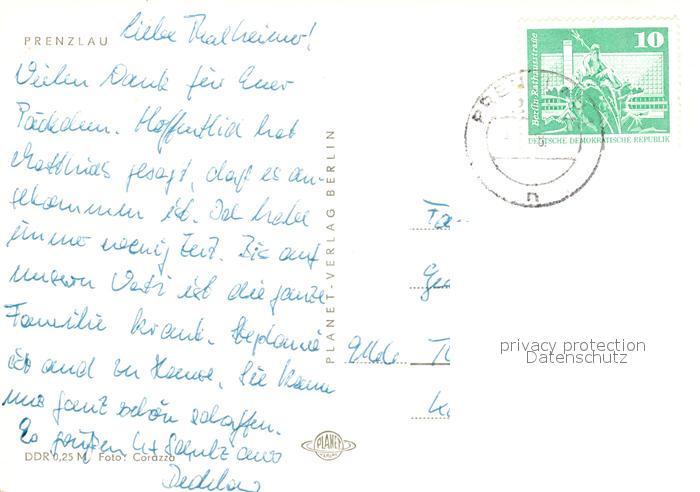 PRENZLAU
Liebe Thalheimer!
Vielen Dank für Euer
Päckchen. Hoffentlich hat
Matthias gesagt, daß es an-
gekommen ist. Ich habe
immer wenig Zeit. Bis auf
unsern Vati ist die ganze
Familie krank. Stephanie
ist auch zu Hause. Sie kann
uns ganz schön schaffen.
Es grüßen
DDR 0,25 M Foto: Corazza
PLANET-VERLAG BERLIN
PLANET
VERLAG
Berlin Rathausstraße
10
DEUTSCHE DEMOKRATISCHE REPUBLIK
n
privacy protection
Datenschutz